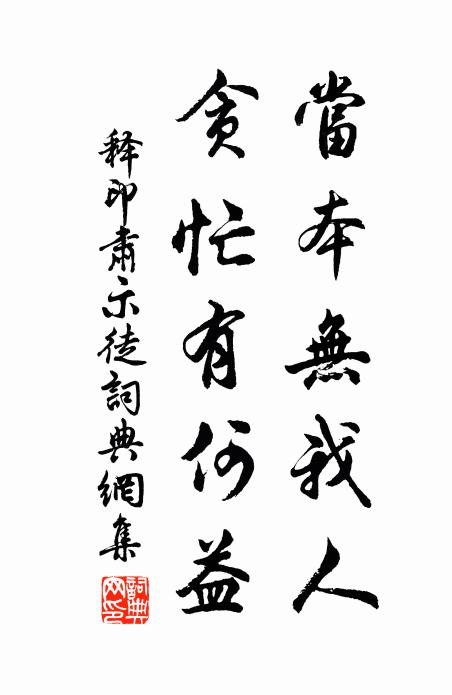 當本無我人
貪忙有何益
释印肅示徒詞典網集
詞典网印